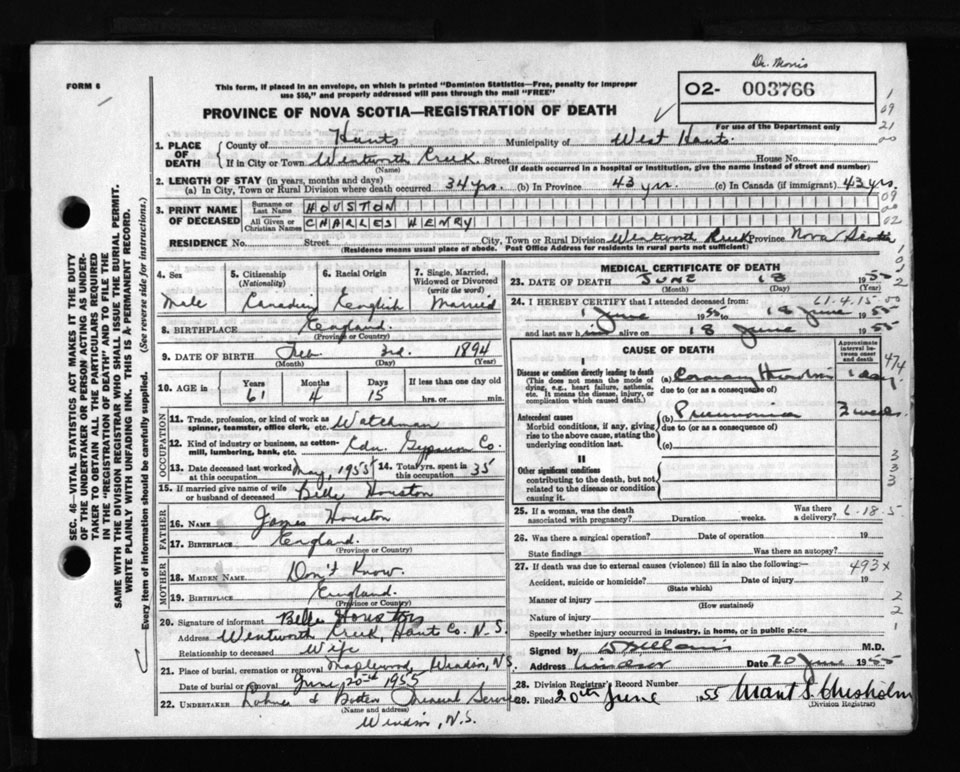 Dr. Morris
FORM 6
This form, if placed in an envelope, on which is printed "Dominion Statistics—Free, penalty for improper
use $50," and properly addressed will pass through the mail "FREE"
02- 003766
For use of the Department only
PROVINCE OF NOVA SCOTIA—REGISTRATION OF DEATH
1. PLACE OF DEATH
County of Hants Municipality of West Hants
If in City or Town Wentworth Creek Street House No.
(Name) (If death occurred in a hospital or institution, give the name instead of street and number)
2. LENGTH OF STAY (in years, months and days)
(a) In City, Town or Rural Division where death occurred 34 yrs. (b) In Province 43 yr. (c) In Canada (if immigrant) 43 yrs.
3. PRINT NAME OF DECEASED
Surname or Last Name HOUSTON
All Given or Christian Names CHARLES HENRY
RESIDENCE No. Street City, Town or Rural Division Wentworth Creek Province Nova Scotia
(Residence means usual place of abode. Post Office Address for residents in rural parts not sufficient)
4. Sex Male
5. Citizenship (Nationality) Canadian
6. Racial Origin English
7. Single, Married, Widowed or Divorced (write the word) Married
8. BIRTHPLACE England
(Province or Country)
9. DATE OF BIRTH Feb. 3rd. 1894
(Month) (Day) (Year)
10. AGE in Years 61 Months 4 Days 15 If less than one day old
hrs. or min.
OCCUPATION
11. Trade, profession or kind of work as
spinner, teamster, office clerk, etc. Watchman
12. Kind of industry or business, as cotton-
mill, lumbering, bank, etc. Cdn. Gypsum Co.
13. Date deceased last worked at this occupation May, 1955 14. Total yrs. spent in this occupation 35
15. If married give name of wife
or husband of deceased Belle Houston
FATHER
16. NAME James Houston
17. BIRTHPLACE England.
(Province or Country)
MOTHER
18. MAIDEN NAME Don't Know.
19. BIRTHPLACE England.
(Province or Country)
20. Signature of informant Belle Houston
Address Wentworth Creek, Hants Co. N.S.
Relationship to deceased Wife
21. Place of burial, cremation or removal Maplewood, Windsor, N.S.
Date of burial or removal June, 20th 1955
22. UNDERTAKER Funeral Service
(Name and address)
Windsor, N.S.
MEDICAL CERTIFICATE OF DEATH
23. DATE OF DEATH JUNE 18 1955
(Month) (Day)
24. I HEREBY CERTIFY that I attended deceased from: 61.4.15 00
1 June 1955 to 18 June 1955
and last saw him alive on 18 June 1955
CAUSE OF DEATH
Approximate interval between onset and death
I
Disease or condition directly leading to death
(This does not mean the mode of
dying, e.g., heart failure, asthenia,
etc. It means the disease, injury, or
complication which caused death.)
(a) Coronary 1 day
due to (or as a consequence of)
Antecedent causes
Morbid conditions, if any, giving
rise to the above cause, stating the
underlying condition last.
(b) Pneumonia 3 weeks.
due to (or as a consequence of)
(c)
II
Other significant conditions
contributing to the death, but not
related to the disease or condition
causing it.
474
3
3
3
25. If a woman, was the death
associated with pregnancy? Duration weeks. Was there a delivery? 6-18-5
26. Was there a surgical operation? Date of operation 19
State findings Was there an autopsy?
27. If death was due to external causes (violence) fill in also the following:— 493x
Accident, suicide or homicide? Date of injury 19
(State which)
Manner of injury 2
(How sustained) 2
Nature of injury
Specify whether injury occurred in industry, in home, or in public place 1
Signed by M.D.
Address Windsor Date 20 June 1955
28. Division Registrar's Record Number
29. Filed 20th June 1955 Grant S. Chisholm
(Division Registrar)
SEC. 46—VITAL STATISTICS ACT MAKES IT THE DUTY
OF THE UNDERTAKER OR PERSON ACTING AS UNDER-
TAKER TO OBTAIN ALL THE PARTICULARS REQUIRED
IN THE "REGISTRATION OF DEATH" AND TO FILE THE
SAME WITH THE DIVISION REGISTRAR WHO SHALL ISSUE THE BURIAL PERMIT.
WRITE PLAINLY WITH UNFADING INK. THIS IS A PERMANENT RECORD.
Every item of information should be carefully supplied. (See reverse side for instructions.)
1
09
21
00
09
00
02